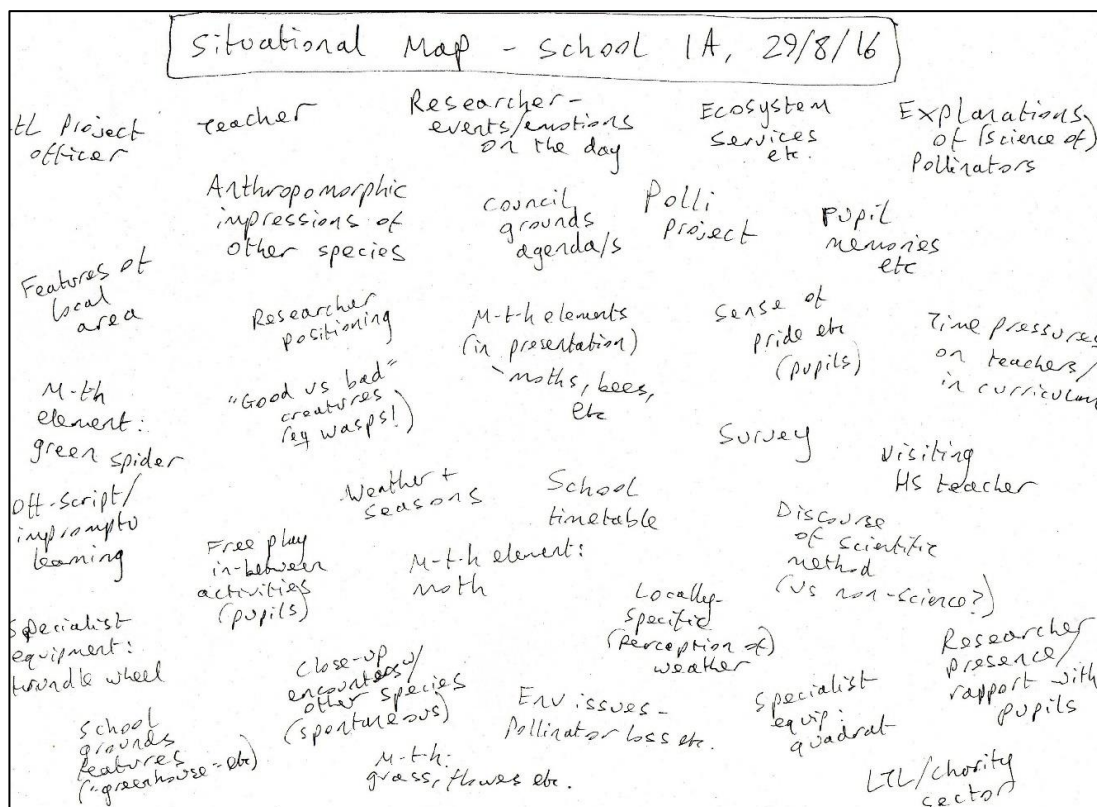 Situational Map - School 1A, 29/8/16
LtL Project
officer
Teacher
Researcher -
events/emotions
on the day
Ecosystem
services
etc.
Explanations
of (science of)
Pollinators
Anthropomorphic
impressions of
other species
Council
grounds
agenda/s
Polli
Project
Pupil
memories
etc
Features of
local
area
Researcher
positioning
M-t-h elements
(in presentation)
- moths, bees,
etc
Sense of
pride etc
(pupils)
Time pressures
on teachers/
in curriculum
M-th
element:
green spider
"Good vs bad"
creatures
(eg wasps!)
Survey
Visiting
HS teacher
Off-script/
impromptu
learning
Weather +
seasons
School
timetable
Discourse
of scientific
method
(vs non-science?)
Free play
in-between
activities
(pupils)
M-t-h element:
moth
Locally-
specific
(perception of)
weather
Researcher
presence/
rapport with
pupils
Specialist
equipment:
trundle wheel
Close-up
encounters w/
other species
(spontaneous)
Env issues -
Pollinator loss etc.
Specialist
equip:
quadrat
School
grounds
features
("greenhouse" etc)
M-t-h:
grass, flowes etc.
LTL/charity
sector